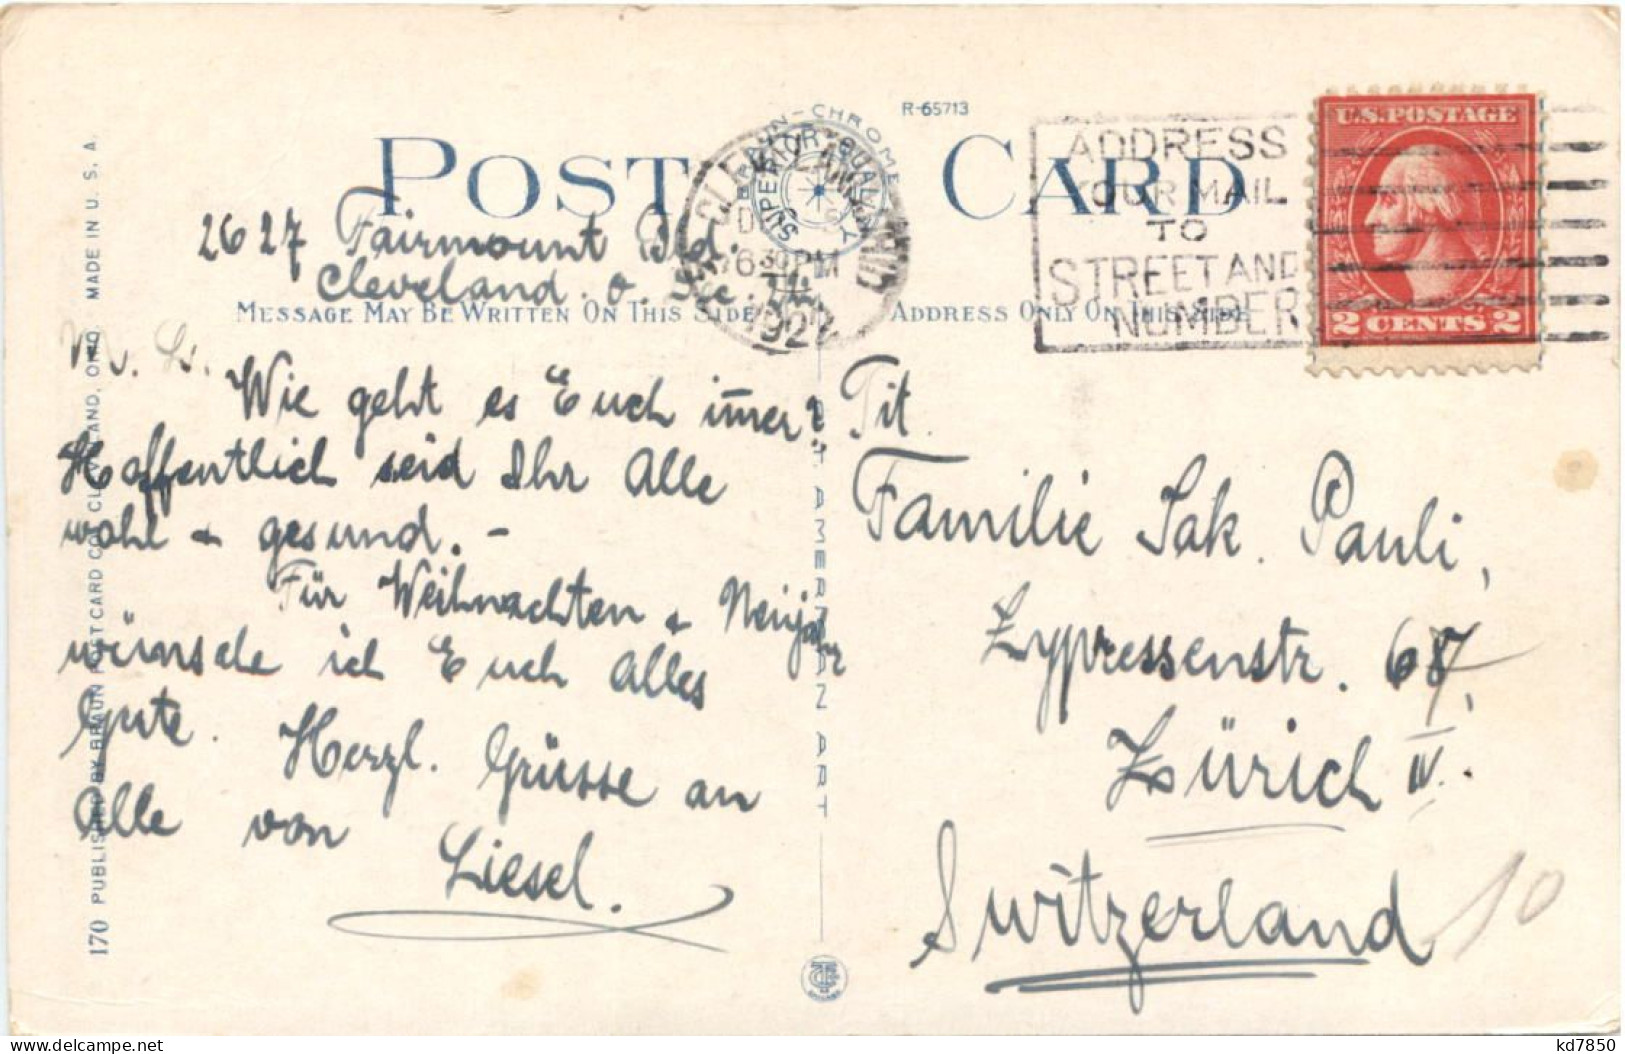 POST CARD
R-65713
BRAUN-CHROME
SUPERIOR QUALITY
CLEVELAND
D
630PM
1922
ADDRESS
YOUR MAIL
TO
STREET AND
NUMBER
U.S.POSTAGE
2 CENTS 2
2627 Fairmount Bld.
Cleveland. O.
MESSAGE MAY BE WRITTEN ON THIS SIDE
ADDRESS ONLY ON THIS SIDE
Wie geht es Euch im̅er?
Hoffentlich seid Ihr Alle
wohl & gesund. -
Für Weihnachten & Neujahr
wünsche ich Euch alles
Gute. Herzl. Grüsse an
Alle von
Liesel.
Tit.
Familie Jak. Pauli,
Zypressenstr. 67,
Zürich IV.
Switzerland
10
170 PUBLISHED BY BRAUN POST CARD CO. CLEVELAND, OHIO MADE IN U. S. A.
C.T. AMERICAN ART
kd7850